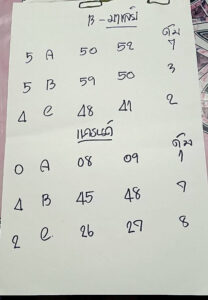 13 - มาเลย์
ดับ
5 A 50 52 7
5 B 59 50 3
4 C 48 41 2
แคนดี้
ดับ
0 A 08 09 1
4 B 45 48 7
2 C 26 27 8